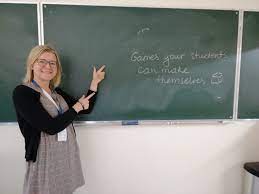 Games your students
can make
themselves